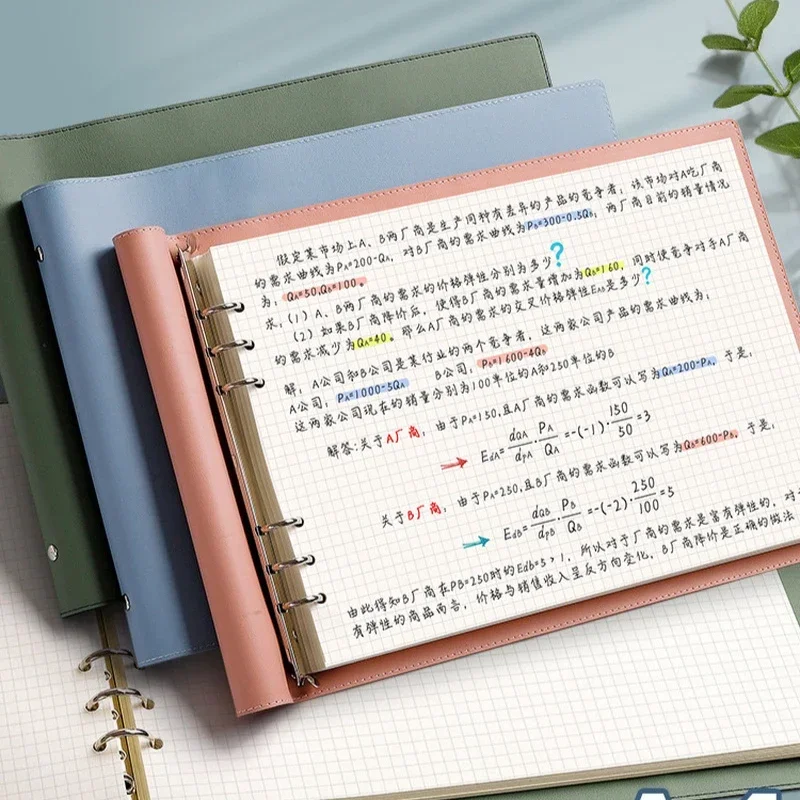 假定某市场上A、B两厂商是生产同种有差异的产品的竞争者；该市场对A吃厂商
的需求曲线为PA=200-QA，对B厂商的需求曲线为PB=300-0.5QB；两厂商目前的销量情况
为；QA=50,QB=100。
求；(1) A、B两厂商的需求的价格弹性分别为多少？
(2) 如果B厂商降价后，使得B厂商的需求量增加为QB=160，同时使竞争对手A厂商
的需求减少为QA=40。那么A厂商的需求的交叉价格弹性EAB是多少？
解；A公司和B公司是某行业的两个竞争者，这两家公司产品的需求曲线为；
A公司，PA=1000-5QA B公司，PB=1600-4QB
这两家公司现在的销量分别为100单位的A和250单位的B
解答:关于A厂商，由于PA=150,且A厂商的需求函数可以写为QA=200-PA，于是，
EdA=dQA/dPA·PA/QA=-(-1)·150/50=3
关于B厂商，由于PA=250,且B厂商的需求函数可以写为QB=600-PB。于是；
EdB=dQB/dPB·PB/QB=-(-2)·250/100=5
由此得知B厂商在PB=250时的Edb=5>1，所以对于厂商的需求是富有弹性的，对
有弹性的商品而言，价格与销售收入呈反方向变化，B厂商降价是正确的做法